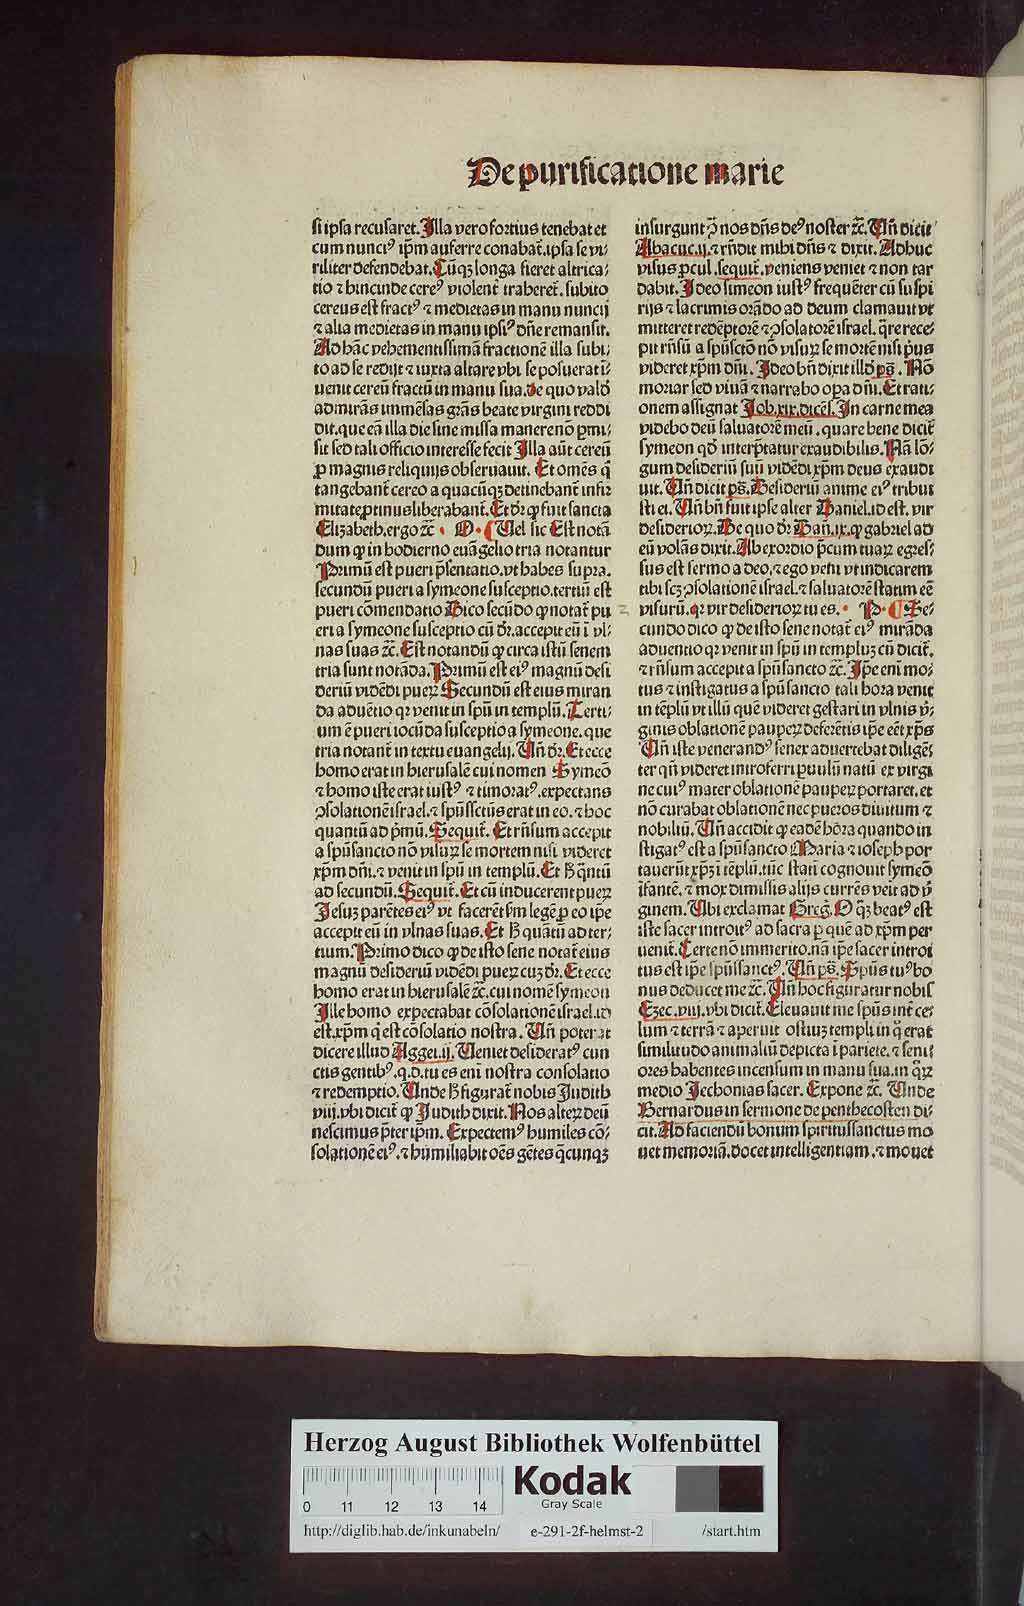 De purificatione marie
si ipsa recusaret. Illa vero fortius tenebat et
cum nunciꝰ ip̄m auferre conabat̄. ipsa se vi⸗
riliter defendebat. Cūqꝫ longa fieret altrica⸗
tio ⁊ hincinde cereꝰ violent̄ traheret̄. subito
cereus est fractꝰ ⁊ medietas in manu nuncij
⁊ alia medietas in manu ipsiꝰ dn̄e remansit.
Ad hāc vehementissimā fractionē illa subi⸗
to ad se redijt ⁊ iuxta altare vbi se posuerat i⸗
uenit cereū fractū in manu sua. de quo valde
admirās immēsas gr̄as beate virgini reddi
dit. que eā illa die sine missa manere nō ꝑmi⸗
sit sed tali officio interesse fecit Illa aūt cereū
ꝓ magnis reliquijs obseruauit. Et omēs q̄
tangebant̄ cereo a quacūqꝫ detinebant̄ infir
mitate ꝓtinus liberabant̄. Et dr̄ ꝙ fuit sancta
Elizabeth. ergo ⁊c̄ · O · ¶ Uel sic Est notā
dum ꝙ in hodierno euāgelio tria notantur
Primū est pueri p̄sentatio. vt habes supra.
secundū pueri a symeone susceptio. tertiū est
pueri cōmendatio Dico secūdo ꝙ notat̄ pu
eri a symeone susceptio cū dr̄. accepit eū ī vl⸗
nas suas ⁊c̄. Est notandū ꝙ circa istū senem
tria sunt notāda. Primū est eiꝰ magnū desi
deriū vidēdi pueꝝ Secundū est eius miran
da aduētio qꝛ venit in spū in templū. Terti⸗
um ē pueri iocūda susceptio a symeone. que
tria notant̄ in textu euangelij. Un̄ dr̄. Et ecce
homo erat in hierusalē cui nomen Symeō
⁊ homo iste erat iustꝰ ⁊ timoratꝰ. expectans
ꝯsolationē israel. ⁊ spūssctūs erat in eo. ⁊ hoc
quantū ad p̄mū. Sequit̄. Et rn̄sum accepit
a spūsancto nō visuꝝ se mortem nisi videret
xp̄m dn̄i. ⁊ venit in spū in templū. Et ħ q̄ntū
ad secundū. Sequit̄. Et cū inducerent pueꝝ
Jesuꝫ parētes eiꝰ vt facerēt ẜm legē ꝑ eo ip̄e
accepit eū in vlnas suas. Et ħ quātū ad ter⸗
tium. Primo dico ꝙ de isto sene notat̄ eius
magnū desideriū vidēdi pueꝝ cuꝫ dr̄. Et ecce
homo erat in hierusalē ⁊c̄. cui nomē symeon
Ille homo expectabat cōsolationē israel. id
est. xp̄m q̄ est cōsolatio nostra. Un̄ poterat
dicere illud Aggei.ij. Ueniet desideratꝰ cun
ctis gentibꝰ. q.d. tu es eni nostra consolatio
⁊ redemptio. Unde ħ figurat̄ nobis Judith
viij. vbi dicit̄ ꝙ Judith dixit. Nos alteꝝ deū
nescimus p̄ter ip̄m. Expectemꝰ humiles cō⸗
solationē eiꝰ. ⁊ humiliabit oēs gētes q̄cunqꝫ
insurgunt ꝯ̄ nos dn̄s deꝰ noster ⁊c̄. Un̄ dicit̄
Abacuc.ij. ⁊ rn̄dit mihi dn̄s ⁊ dixit. Adhuc
visus ꝓcul. sequit̄. veniens veniet ⁊ non tar
dabit. Ideo simeon iustꝰ frequēter cū suspi
rijs ⁊ lacrimis orādo ad deum clamauit vt
mitteret redēptorē ⁊ ꝯsolatorē israel. q̄re rece⸗
pit rn̄sū a spūsctō nō visuꝝ se mortē nisi p̄us
videret xp̄m dn̄i. Ideo bn̄ dixit illd̄ ps̄. Nō
moriar sed viuā ⁊ narrabo oꝑa dn̄i. Et rati⸗
onem assignat Job.xix. dicēs. In carne mea
videbo deū saluatorē meū. quare bene dicit̄
symeon qd̄ interp̄tatur exaudibilis. Nā lō⸗
gum desideriū suū vidēdi xp̄m deus exaudi
uit. Un̄ dicit ps̄. Desideriū anime eiꝰ tribui
sti ei. Un̄ bn̄ fuit ipse alter Daniel. id est. vir
desiderioꝝ. De quo dr̄ Dan̄.ix. ꝙ gabriel ad
eū volās dixit. Ab exordio p̄cum tuaꝝ egres⸗
sus est sermo a deo. ⁊ ego veni vt indicarem
tibi scꝫ ꝯsolationē israel. ⁊ saluatorē statim eē
visurū. qꝛ vir desiderioꝝ tu es. · P · ¶ Se⸗
cundo dico ꝙ de isto sene notat̄ eiꝰ mirāda
aduentio qꝛ venit in spū in templuꝫ cū dicit̄.
⁊ rn̄sum accepit a spūsancto ⁊c̄. Ip̄e eni mo⸗
tus ⁊ instigatus a spūsancto tali hora venit
in tēplū vt illū quē videret gestari in vlnis v̄⸗
ginis oblationē pauperꝝ deferētis ip̄e eēt xp̄s
Un̄ iste venerandꝰ senex aduertebat diligē⸗
ter qn̄ videret introferri ꝑuulū natū ex virgi
ne cuiꝰ mater oblationē paupeꝝ portaret. et
nō curabat oblationē nec pueros diuitum ⁊
nobiliū. Un̄ accidit ꝙ eadē hōra quando in
stigatꝰ est a spūsancto Maria ⁊ ioseph por
tauerūt xp̄ꝫ ī tēplū. tūc statī cognouit symeō
īfantē. ⁊ mox dimissis alijs currēs veīt ad v̄
ginem. Ubi exclamat Greg̃. O q̄ꝫ beatꝰ est
iste sacer introitꝰ ad sacra ꝑ quē ad xp̄m per
uenit̄. Certe nō immerito. nā ip̄e sacer introi
tus est ip̄e spūssanctꝰ. Un̄ ps̄. Spūs tuꝰ bo
nus deducet me ⁊c̄. Un̄ hoc figuratur nobis
Ezec.viij. vbi dicit̄. Eleuauit me spūs int̄ ce⸗
lum ⁊ terrā ⁊ aperuit ostiuꝫ templi in q̄ erat
similitudo animaliū depicta ī pariete. ⁊ seni⸗
ores habentes incensum in manu sua. in q̄ꝝ
medio Jechonias sacer. Expone ⁊c̄. Unde
Bernardus in sermone de penthecosten di⸗
cit. Ad faciendū bonum spiritussanctus mo
uet memoriā. docet intelligentiam. ⁊ mouet
Herzog August Bibliothek Wolfenbüttel
0 11 12 13 14
Kodak
Gray Scale
http://diglib.hab.de/inkunabeln/ e-291-2f-helmst-2 /start.htm